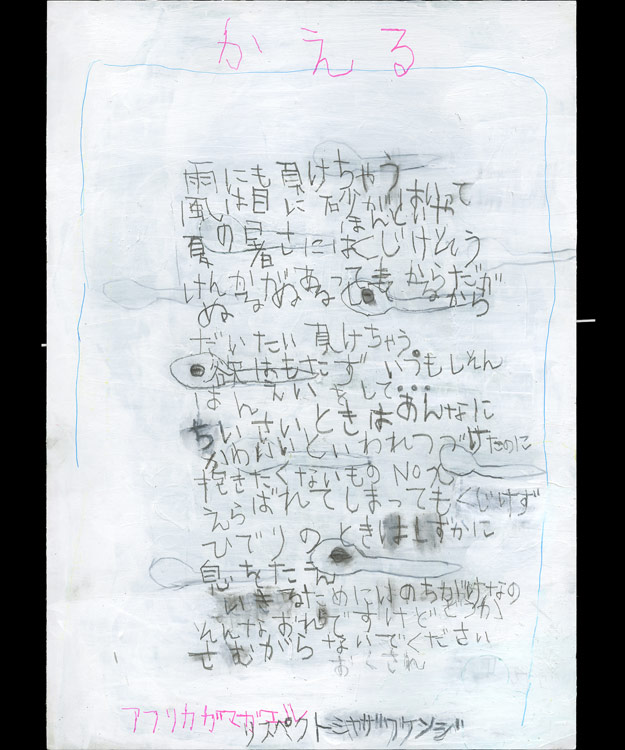 かえる
雨にも負けちゃう
風には目に砂がはいって
夏の暑さにはくじけそう
だいたい負けちゃう
欲はもたず いつもしぜん
はんえいをして・・・
ちいさいときはあんなに
かわいいといわれつづけたのに
抱きたくないもの No.1
えらばれてしまってもくじけず
ひでりのときはしずかに
息をたえ
いきるためにいのちがけなの
そんなおれですけどどうか
せむがらないでください
アフリカガマガエル
リスペクトミヤザワケンジ